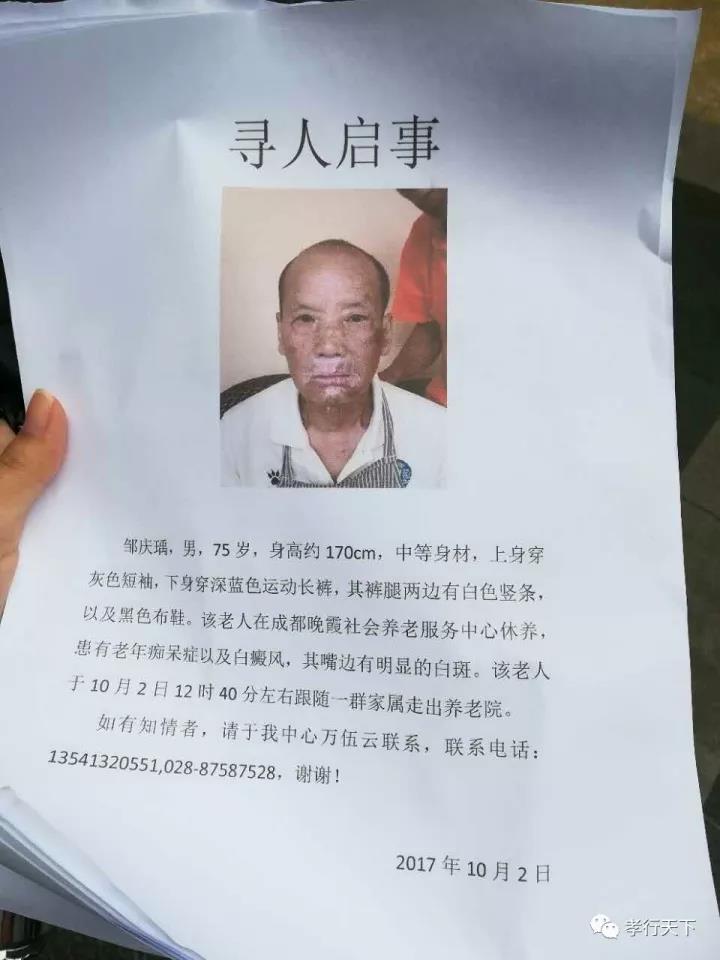 寻人启事
邹庆瑀，男，75岁，身高约170cm，中等身材，上身穿
灰色短袖，下身穿深蓝色运动长裤，其裤腿两边有白色竖条，
以及黑色布鞋。该老人在成都晚霞社会养老服务中心休养，
患有老年痴呆症以及白癜风，其嘴边有明显的白斑。该老人
于10月2日12时40分左右跟随一群家属走出养老院。
如有知情者，请于我中心万伍云联系，联系电话：
13541320551,028-87587528，谢谢！
2017年10月2日
孝行天下